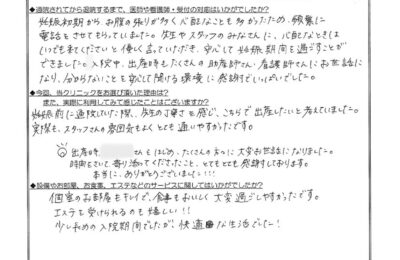 ◆通院されてから退院するまで、医師や看護師・受付の対応はいかがでしたか?
妊娠初期からお腹の張りが多く心配なことも多かったため、頻繁に
電話をさせてもらっていました。先生やスタッフのみなさんに、心配なときは
いつでも来てくださいと優しく言っていただき、安心して妊娠期間を過ごすことが
できました。入院中、出産時もたくさんの助産師さん、看護師さんにお世話に
なり、分からないことを安心して聞ける環境に感謝でいっぱいでした。
◆今回、当クリニックをお選び頂いた理由は?
また、実際に利用してみて感じたことはございますか?
妊娠前に通院していた時、先生の丁寧さを感じ、こちらで出産したいと考えていました。
実際も、スタッフさんの雰囲気もよくとても通いやすかったです。
出産時 さんをはじめ、たくさんの方々に大変お世話になりました。
時間をさいて寄り添ってくださったこと、とてもとても感謝しております。
本当に、ありがとうございました!!!
◆設備やお部屋、お食事、エステなどのサービスに関してはいかがでしたか?
個室のお部屋もキレイで、食事もおいしく大変過ごしやすかったです。
エステも受けられるのも嬉しい!!
少し長めの入院期間でしたが、快適な生活でした!